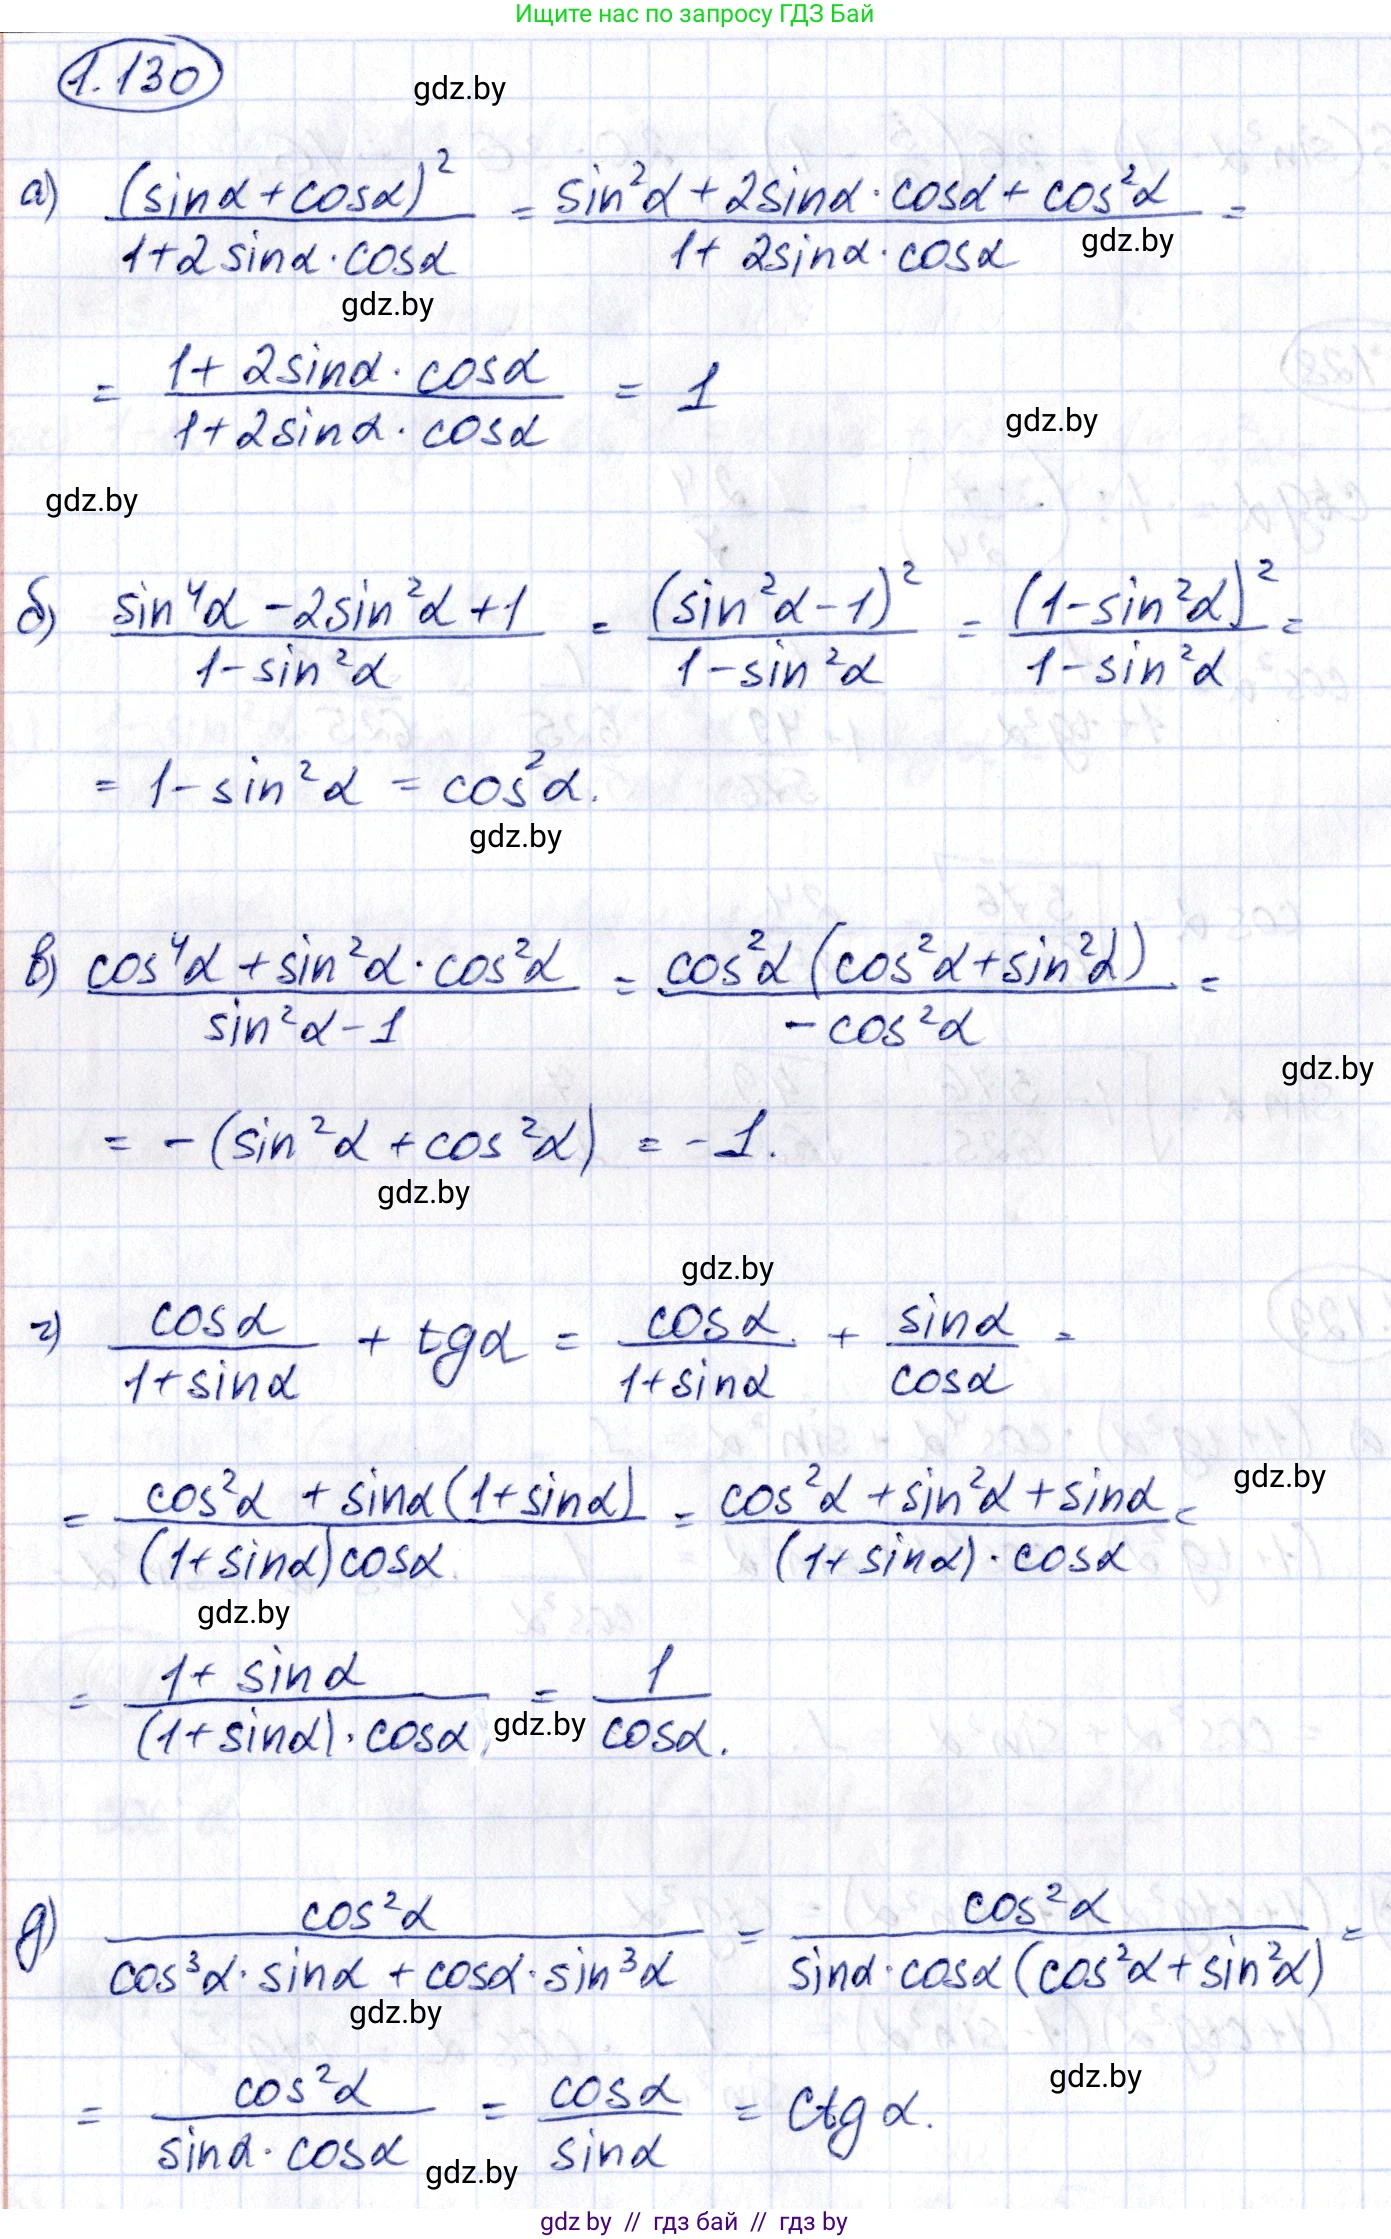 Ищите нас по запросу ГДЗ Бай
1.130
gdz.by
а) (sinα + cosα)² / (1+2sinα·cosα) = (sin²α + 2sinα·cosα + cos²α) / (1+2sinα·cosα) =
gdz.by
gdz.by
= (1+2sinα·cosα) / (1+2sinα·cosα) = 1
gdz.by
gdz.by
б) (sin⁴α - 2sin²α + 1) / (1-sin²α) = (sin²α - 1)² / (1-sin²α) = (1-sin²α)² / (1-sin²α) =
= 1-sin²α = cos²α.
gdz.by
в) (cos⁴α + sin²α·cos²α) / (sin²α - 1) = cos²α(cos²α + sin²α) / (-cos²α) =
gdz.by
= -(sin²α + cos²α) = -1.
gdz.by
gdz.by
г) cosα / (1+sinα) + tgα = cosα / (1+sinα) + sinα / cosα =
= (cos²α + sinα(1+sinα)) / ((1+sinα)cosα) = (cos²α + sin²α + sinα) / ((1+sinα)·cosα) =
gdz.by
gdz.by
= (1+sinα) / ((1+sinα)·cosα) = 1 / cosα.
gdz.by
д) cos²α / (cos³α·sinα + cosα·sin³α) = cos²α / (sinα·cosα(cos²α + sin²α)) =
gdz.by
gdz.by
= cos²α / (sinα·cosα) = cosα / sinα = ctgα.
gdz.by
gdz by // гдз бай // gdz by